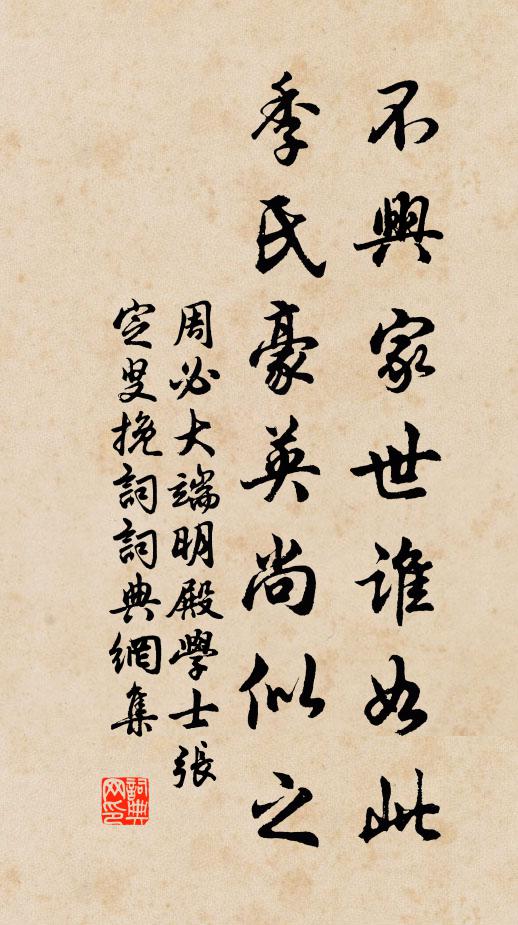 不興家世誰如此
季氏豪英尚似之
周必大端明殿學士張
定叟挽詞詞典網集
詞典
网印